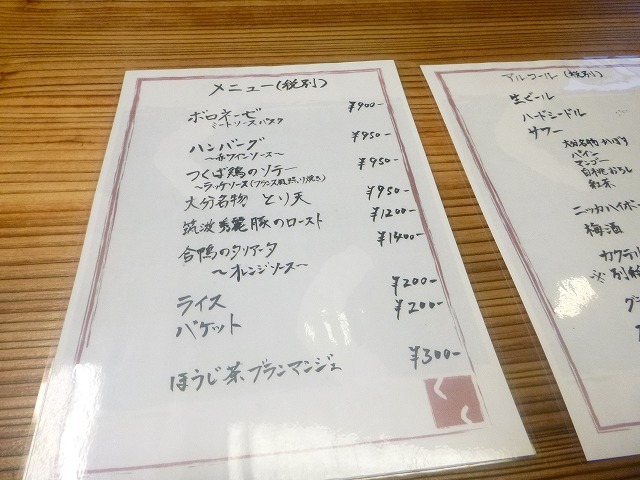 メニュー(税別)
ボロネーゼ ¥900-
ミートソースパスタ
ハンバーグ ¥950-
〜赤ワインソース〜
つくば鶏のソテー ¥950-
〜ラヴィゴットソース
大分名物 とり天 ¥950-
筑波秀麗豚のロースト ¥1200-
合鴨のタリアータ ¥1400-
〜オレンジソース〜
ライス ¥200-
バゲット ¥200-
ほうじ茶ブランマンジェ ¥300-
くく
アルコール(税別)
生ビール
ハードシードル
サワー
大分名物かぼす
パイン
マンゴー
白桃おろし
紅茶
ニッカハイボ
梅酒
カクテル
※別
グ